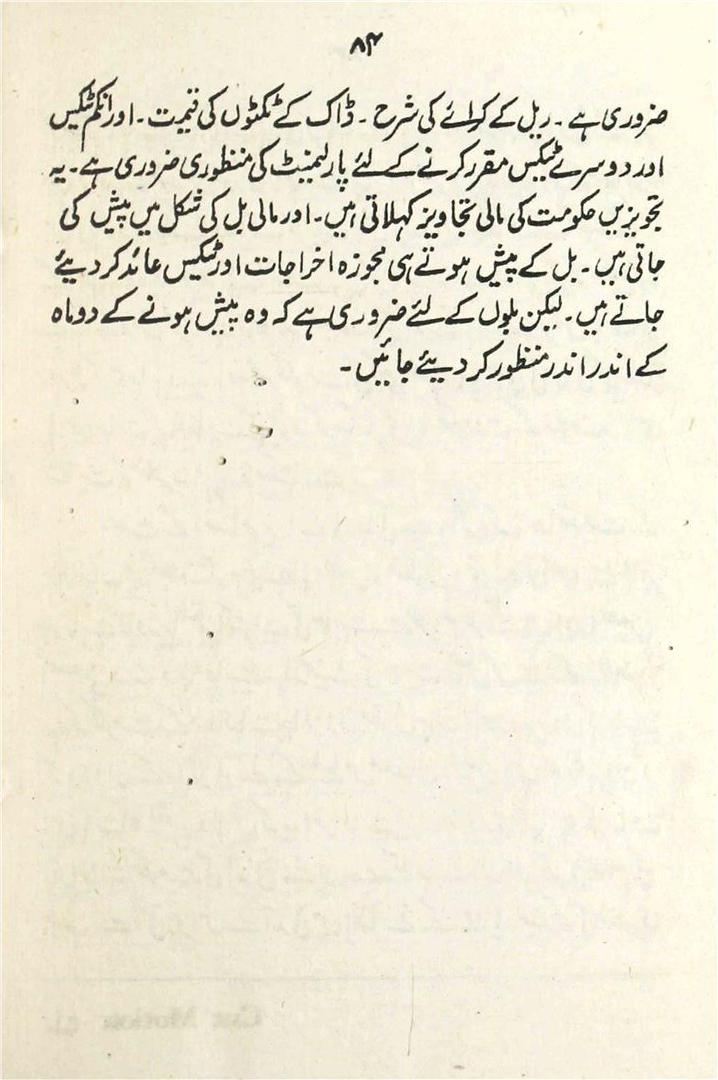 ۸۴
ضروری ہے۔ ریل کے کرائے کی شرح۔ ڈاک کے ٹکٹوں کی قیمت۔ اور انکم ٹیکس
اور دوسرے ٹیکس مقرر کرنے کے لئے پارلیمنٹ کی منظوری ضروری ہے۔ یہ
تجویزیں حکومت کی مالی تجاویز کہلاتی ہیں۔ اور مالی بل کی شکل میں پیش کی
جاتی ہیں۔ بل کے پیش ہوتے ہی مجوزہ اخراجات اور ٹیکس عائد کر دیئے
جاتے ہیں۔ لیکن بلوں کے لئے ضروری ہے کہ وہ پیش ہونے کے دو ماہ
کے اندر اندر منظور کر دیئے جائیں۔